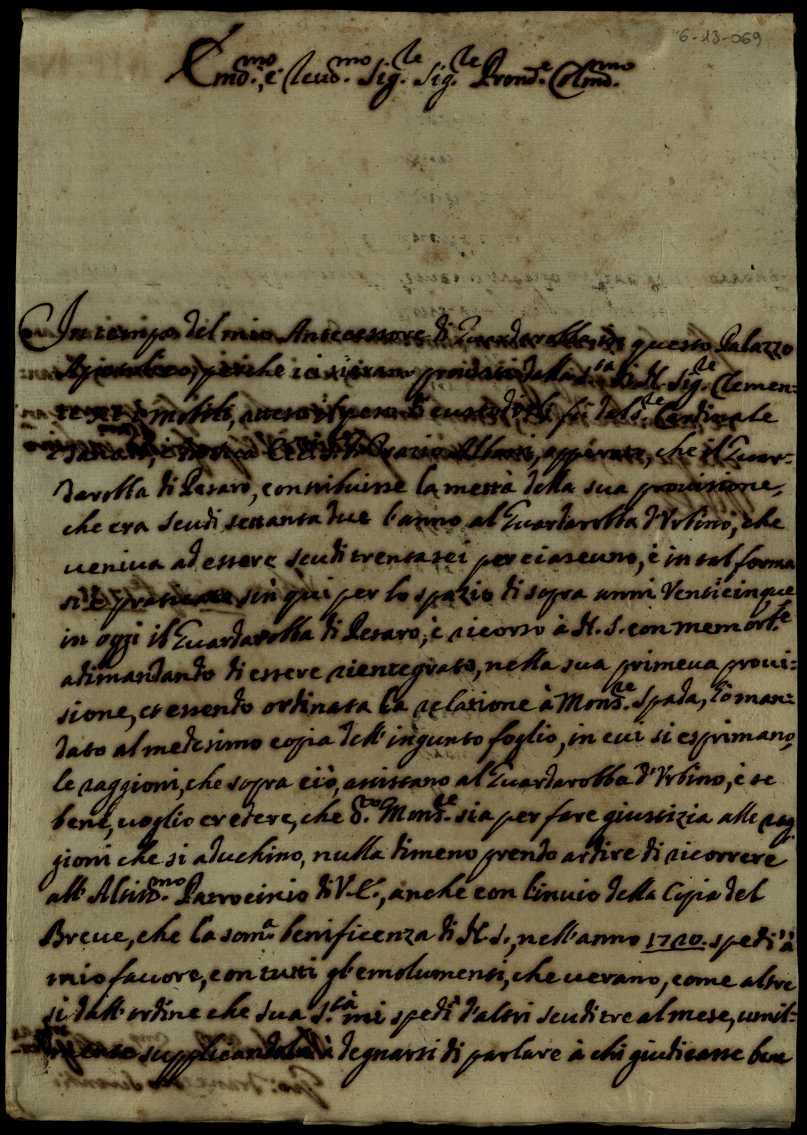 6-13-069
Em̃o. e Reũmo. Sig.re Sig.re Pron̄e. Colmo.
In tempo del mio Antecessore di Guardarobba in questo Palazzo
Apostolico, perche proveduti dalla S.ta di N. Sig.re Clemen-
te mobili, atteso il peso di custodirli fu dal S.e Cardinale
Orazio Albani, apparato, che il Guar-
darobba di Pesaro, contribuisse la mettà della sua provisione,
che era scudi settanta due l'anno al Guardarobba d'Urbino, che
ueniua ad essere scudi trenta sei per ciascuno, è in tal forma
si è praticato sin qui per lo spazio di sopra anni Venticinque
in oggi il Guardarobba di Pesaro, è ricorso à N. S. con memorle
adimandando di essere rientegrato, nella sua primeua proui-
sione, et essendo ordinata la relazione à Mons.re Spada, hò man-
dato al medesimo copia dell'ingunto foglio, in cui si esprimano,
le raggioni, che sopra ciò, assistano al Guardarobba d'Urbino, è se
bene, uoglio credere, che d.o Mons.re sia per fare giustizia alle rag
gioni che si aduchino, nulla dimeno prendo ardire di ricorrere
all'Altis.mo Patrocinio di V. E., anche con l'inuio della Copia del
Breue, che la som.a benificenza di N. S., nell'anno 1720. spedì à
mio fauore, con tutti gl'emolumenti, che uerano, come altre
si dall'ordine che sua S.tà mi spedì d'altri scudi tre al mese, umil-
mente supplicandola à degnarsi di parlare à chi giudicasse bene